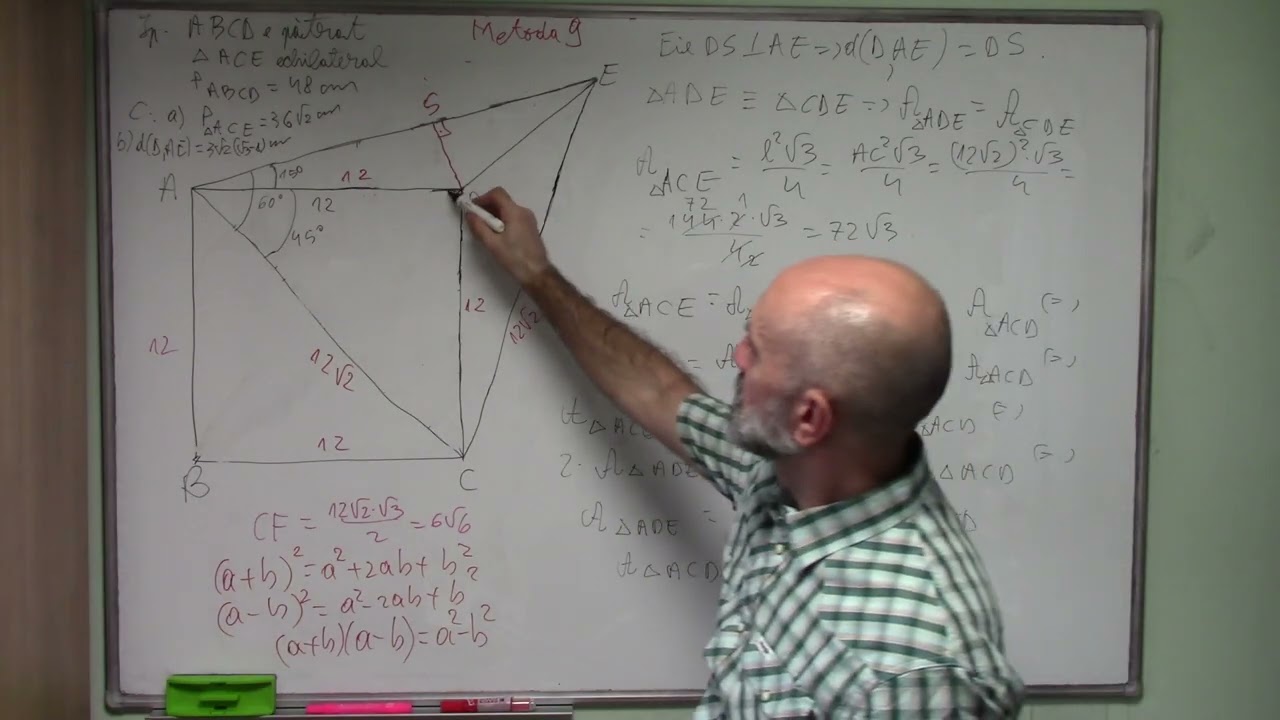 Ip. ABCD e pătrat
△ACE echilateral
P_ABCD = 48 cm
C: a) P_△ACE = 36√2 cm
b) d(D,AE) = 3√2(√3-1) cm
Metoda 9
E
S
A
15°
12
60°
12
45°
12
12
12√2
12√2
12
B
C
CF = 12√2·√3/2 = 6√6
(a+b)² = a²+2ab+b²
(a-b)² = a²-2ab+b²
(a+b)(a-b) = a²-b²
Fie DS⊥AE => d(D,AE) = DS.
△ADE ≡ △CDE => A_△ADE = A_△CDE
A_△ACE = l²√3/4 = AC²√3/4 = (12√2)²·√3/4 =
= 144·2·√3/4 = 72√3
72 1
2
A_△ACE = A_△ A_△ACD (=,
= A A_△ACD (=,
A_△ACE △ACD (=,
2·A_△ADE △ACD (=,
A_△ADE =
A_△ACD